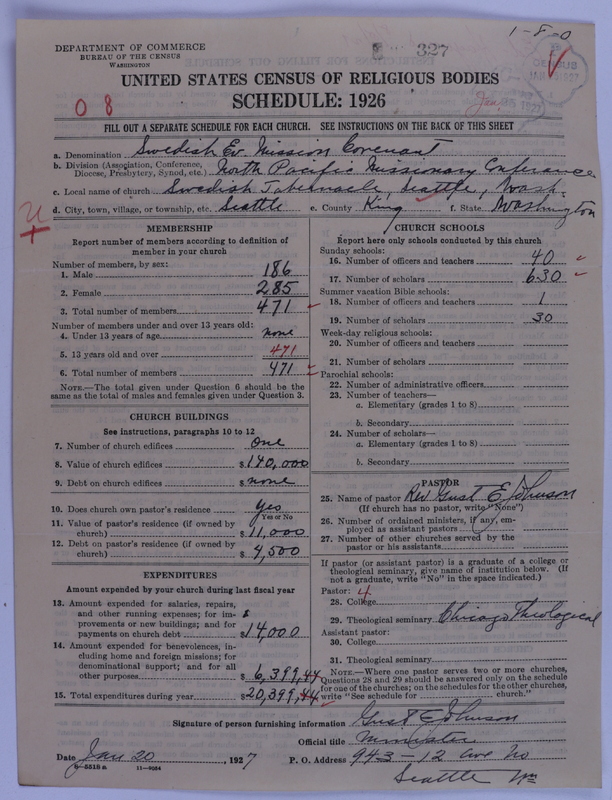 1-8-0
DEPARTMENT OF COMMERCE
BUREAU OF THE CENSUS
WASHINGTON
327
UNITED STATES CENSUS OF RELIGIOUS BODIES
SCHEDULE: 1926
0 8
FILL OUT A SEPARATE SCHEDULE FOR EACH CHURCH. SEE INSTRUCTIONS ON THE BACK OF THIS SHEET
a. Denomination Swedish Ev. Mission Covenant
b. Division (Association, Conference, Diocese, Presbytery, Synod, etc.) North Pacific Missionary Conference
c. Local name of church Swedish Tabernacle, Seattle, Wash.
d. City, town, village, or township, etc. Seattle e. County King f. State Washington
MEMBERSHIP
Report number of members according to definition of
member in your church
Number of members, by sex:
1. Male 186
2. Female 285
3. Total number of members 471
Number of members under and over 13 years old:
4. Under 13 years of age none
5. 13 years old and over 471
6. Total number of members 471
NOTE.—The total given under Question 6 should be
same as the total of males and females given under Question 3.
CHURCH BUILDINGS
See instructions, paragraphs 10 to 12
7. Number of church edifices One
8. Value of church edifices $140,000
9. Debt on church edifices $ none
10. Does church own pastor's residence Yes
Yes or No
11. Value of pastor's residence (if owned by
church) $11,000
12. Debt on pastor's residence (if owned by
church) $4,500
EXPENDITURES
Amount expended by your church during last fiscal year
13. Amount expended for salaries, repairs,
and other running expenses; for im-
provements or new buildings; and for
payments on church debt $14,000
14. Amount expended for benevolences, in-
cluding home and foreign missions; for
denominational support; and for all
other purposes $6,399,44
15. Total expenditures during year $20,399,44
CHURCH SCHOOLS
Report here only schools conducted by this church
Sunday schools:
16. Number of officers and teachers 40
17. Number of scholars 630
Summer vacation Bible schools:
18. Number of officers and teachers 1
19. Number of scholars 30
Week-day religious schools:
20. Number of officers and teachers
21. Number of scholars
Parochial schools:
22. Number of administrative officers
23. Number of teachers—
a. Elementary (grades 1 to 8)
b. Secondary
24. Number of scholars—
a. Elementary (grades 1 to 8)
b. Secondary
PASTOR
25. Name of pastor Rev Gust E Johnson
(If church has no pastor, write "None")
26. Number of ordained ministers, if any, em-
ployed as assistant pastors
27. Number of other churches served by the
pastor or his assistants
If pastor (or assistant pastor) is a graduate of a college or
theological seminary, give name of institution below. (If
not a graduate, write "No" in the space indicated.)
Pastor: 4
28. College
29. Theological seminary Chicago Theological
Assistant pastor:
30. College
31. Theological seminary
NOTE.—Where one pastor serves two or more churches,
Questions 28 and 29 should be answered only on the schedule
for one of the churches; on the schedules for the other churches,
write "See schedule for church."
Signature of person furnishing information Gust E Johnson
Official title Minister
Date Jan 20, 1927 P. O. Address 943-12 Ave No
8-5518a 11-9084 Seattle Wn